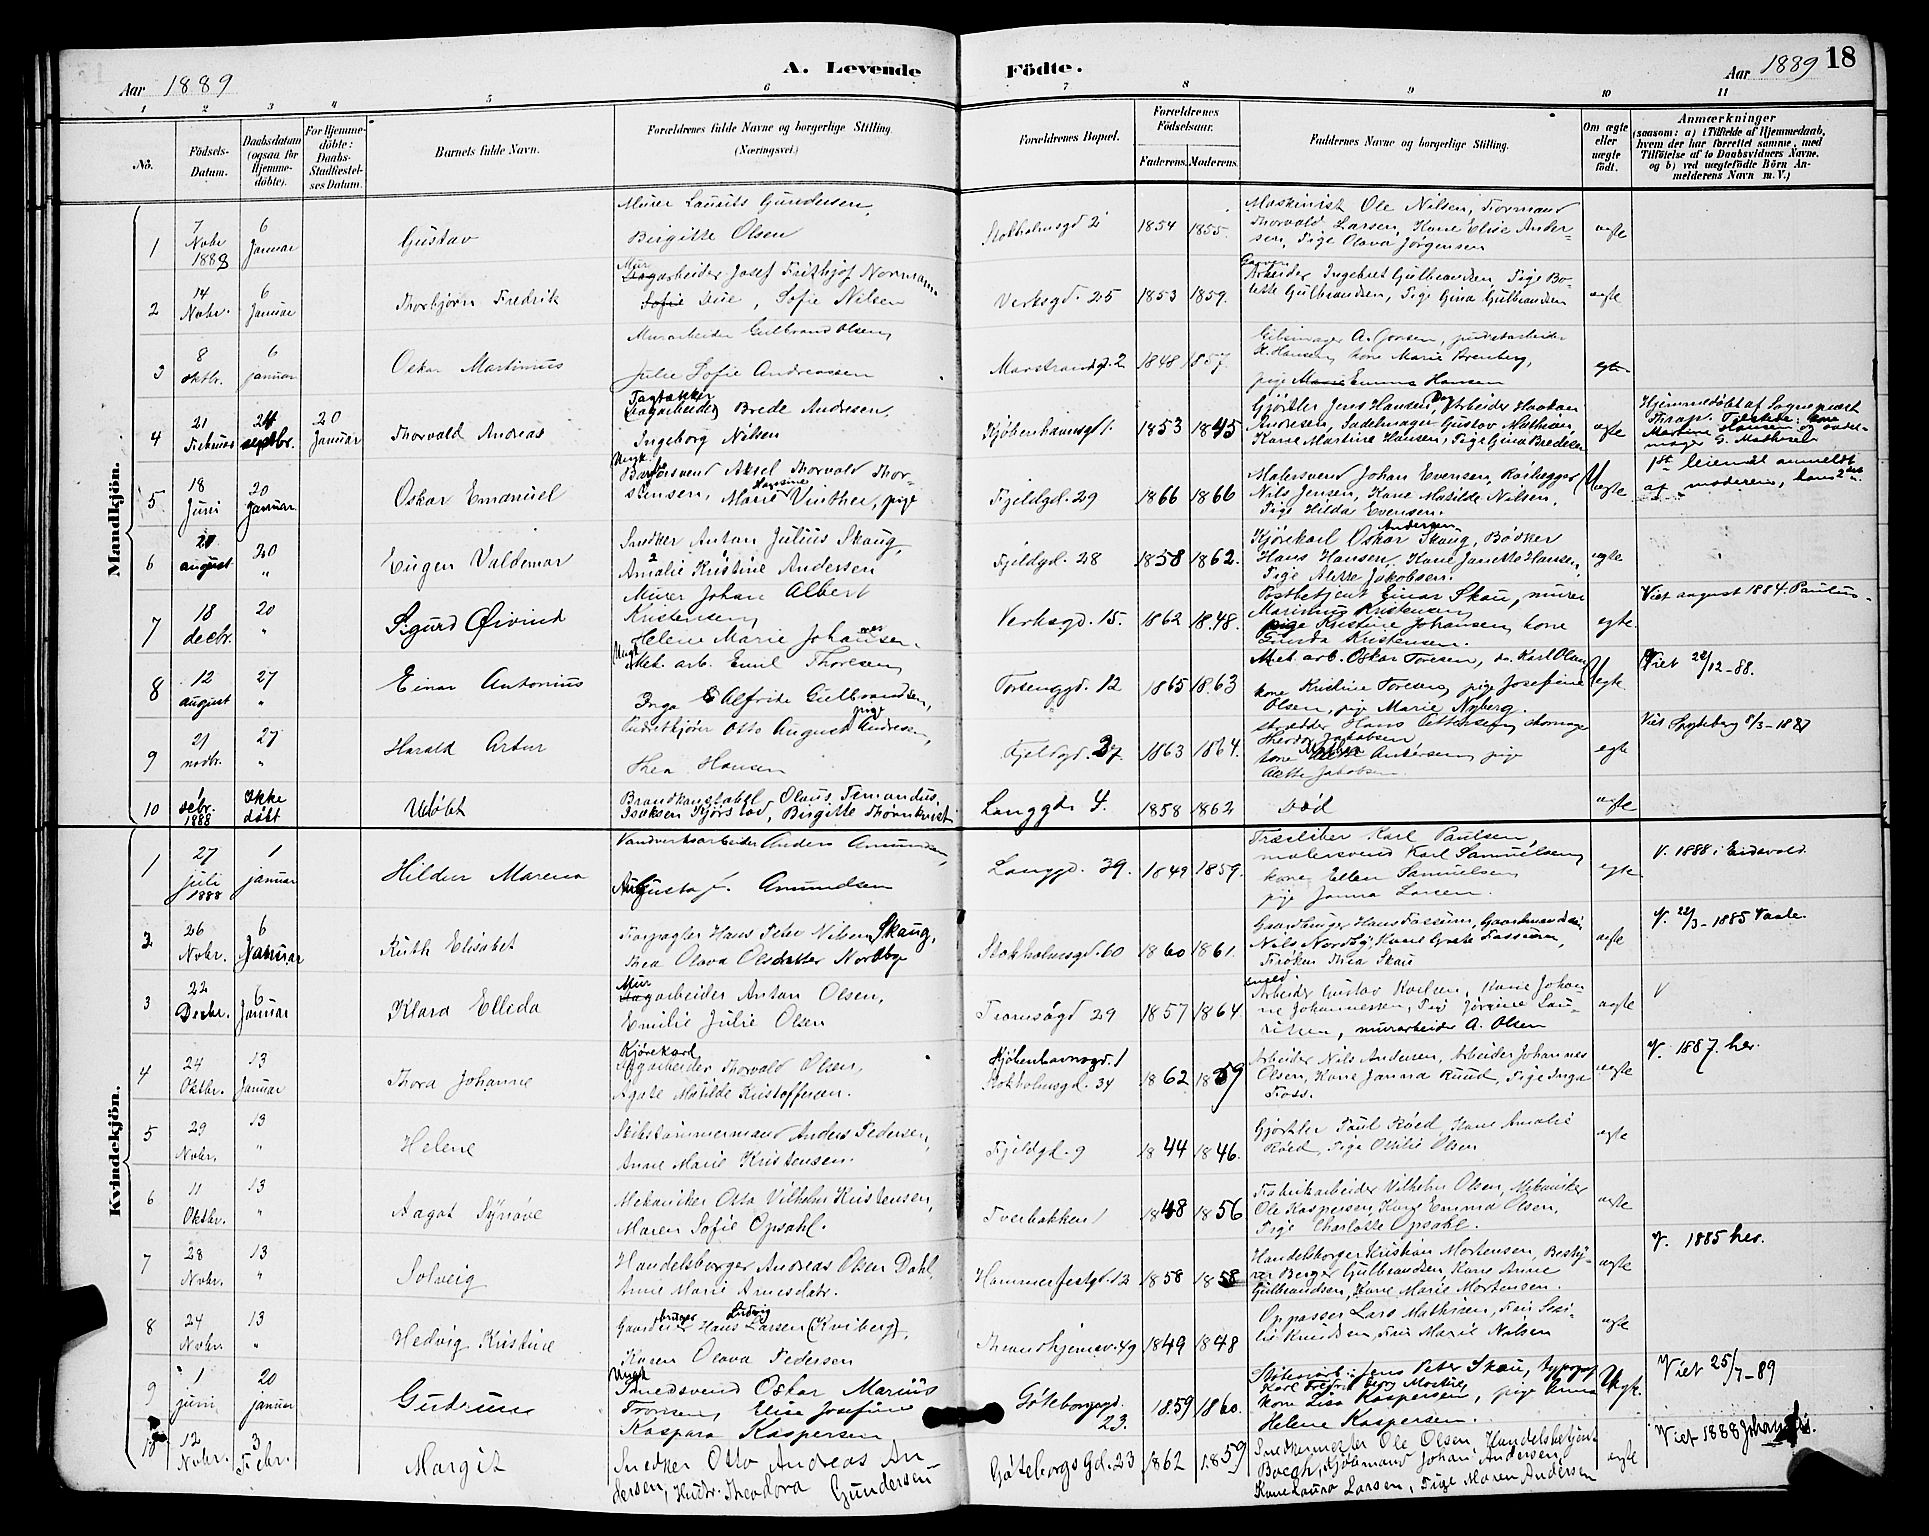 Aar 1889
A. Levende
Födte.
Aar 1889
18
1 2 3 4 5 6 7 8 9 10 11
No.
Födsels-Datum.
Daabsdatum (ogsaa for Hjemme-döbte).
For Hjemme-döbte: Daabs-Stadfæstel-ses Datum.
Barnets fulde Navn.
Forældrenes fulde Navne og borgerlige Stilling. (Næringsvei.)
Forældrenes Bopæl.
Forældrenes Födselsaar.
Faderens. Moderens.
Faddernes Navne og borgerlige Stilling.
Om ægte eller uægte födt.
Anmærkninger
(saasom: a) i Tilfælde af Hjemmedaab, hvem der har forrettet samme, med Tilföielse af to Daabsvidners Navne. og b) ved uægtefödte Börn An-melderens Navn m. V.)
Mandkjön.
1 7 Novbr 1888 6 Januar Gustav
Murer Laurits Gundersen,
Birgitte Olsen
Stokholmsgd 2 1854 1855.
Maskinist Ole Nilsen, Formand
Thorvald Larsen, Kone Elise Ander-
sen, Pige Olava Jörgensen
ægte
2 14 Novbr. 6 Januar Thorbjörn Fredrik
Murarbeider Josef Frithjof Normann
Due, Sofie Nilsen
Verksgd. 25 1853 1859.
Arbeider Ingebret Gulbrandsen, Pige Bo-
lette Gulbrandsen, Pige Gina Gulbrandsen
ægte
3 8 oktbr. 6 januar Oskar Martinius
Murarbeider Gulbrand Olsen,
Julie Sofie Andreassen
Marstrandgd. 2 1848 1857.
K. Hansen, kone Marie Brenberg,
pige Emma Hansen
egte
4 21 Februar 24 septbr. 20 Januar Thorvald Andreas
Tagtækker Brede Andresen,
Ingeborg Nilsen
Kjöbenhavnsgd 1. 1853 1845
Gjörtler Jens Hansen, Arbeider Haakon
Andresen, Sadelmager Gustav Mathisen,
Kone Martine Hansen, Pige Gina Bredesen
ægte
Hjemmedöbt af Sognepræst
5 18 Juni 20 Januar Oskar Emanuel
Ungk. Aksel Thorvald Thor-
stensen, Marie Vinther, pige
Fjeldgd. 29 1866 1866
Malersvend Johan Evensen,
Nils Jensen, Kone Matilde Nilsen,
Pige Hilda Evensen.
Uægte
1ste leiemål anmeldt
af moderen, hans 2det
6 21 august 20 " Eugen Valdemar
Snedker Anton Julius Skaug,
Amalie Kristine Andersen
Fjeldgd. 28 1858 1862.
Kjörekarl Oskar Andersen Skaug, Bödker
Hans Hansen, Kone Janette Hansen,
Pige Alette Jakobsen.
ægte
7 18 decbr. 20 " Sigurd Øivind
Murer Johan Albert
Kristensen,
Helene Marie Johansen
Verksgd. 15. 1862 1848.
Postbetjent Einar Skau, murer
Marinius Kristensen,
pige Kristine Johansen, kone
Gunda Kristensen.
egte.
Viet august 1884. Paulus.
8 12 august 27 " Einar Antonius
Ungk. Mek. arb. Emil Thoresen,
Inga Alfrite Gulbrandsen, pige
Torsenggd. 12 1865 1863
Mek. arb. Oskar Toresen, do. Karl Olsen,
kone Kristine Toresen, pige Josefine
Olsen, pige Marie Nyberg.
Uegte.
Viet 26/12-88.
9 21 novbr. 27 " Harald Artur
Otto August Andresen,
Thea Hansen
Fjeldgd. 27. 1863 1864.
skrædder Hans Pettersen,
Jakobsen
Andersen, pige
Alette Jakobsen.
egte
Viet Spydeberg 8/3-1887
10 1 decbr. 1888 Ikke döbt Udöbt
Brandkonstabel Olaus Fernandus
Isaksen Kjörstad, Birgitte Thörnkvist
Langgd. 4. 1858 1862 Död ægte
Kvindekjön.
1 27 juli 1888 1 januar Hildur Marena
Vandverksarbeider Anders Amundsen,
Augusta f. Amundsen
Langgd. 39. 1849 1859.
Træsliber Karl Paulsen,
malersvend Karl Samuelsen,
kone Ellen Samuelsen,
pige Janna Larsen.
egte
V. 1888 i Eidsvold.
2 26 Novbr. 6 Januar Ruth Elisabet
Forpagter Hans Peter Nilsen Skaug,
Thea Olava Olsdatter Nordbye
Stokholmsgd. 60 1860 1861.
Gaardbruger Hans Fossum, Gaardmandssön
Nils Nordby, Kone Grete Fossum,
Fröken Thea Skau
ægte
V. 22/3-1885 Vaale.
3 22 Decbr. 6 Januar Klara Elleda
Murarbeider Anton Olsen,
Emilie Julie Olsen
Tromsögd 29 1857 1864
Arbeider Gustav Karlsen, Kone Johan-
ne Johannessen, Pige Jörgine Lau-
ritsen, murarbeider A. Olsen
ægte
V
4 24 Oktbr. 13 Januar Thora Johanne
Kjörekarl
Thorvald Olsen,
Agate Matilde Kristoffersen.
Kjöbenhavnsgd. 1
Stokholmsgd. 34 1862 1859
Arbeider Nils Andersen, Arbeider Johannes
Olsen, Kone Janna Ruud, Pige Inga
Foss.
ægte
V. 1887. her.
5 29 Novbr. 13 " Helene
Skibstömmermand Anders Pedersen,
Anne Marie Kristensen.
Fjeldgd. 9 1844 1846.
Gjörtler Paul Röed, Kone Amalie
Röed, Pige Othilie Olsen
ægte
6 11 Oktbr. 13 " Aagot Synöve
Mekaniker Otto Vilhelm Kristensen,
Maren Sofie Opsahl.
Tverbakken 1 1848 1856
Fabrikarbeider Vilhelm Olsen, Mekaniker
Ole Kaspersen, Kone Emma Olsen,
Pige Charlotte Opsahl.
ægte
7 28 Novbr. 13 " Solveig
Handelsborger Andreas Olsen Dahl,
Anne Marie Arnesdatr.
Hammerfestgd. 12 1858 1858
Handelsborger Kristian Mortensen, Besty-
rer Berger Gulbrandsen, Kone Anne
Gulbrandsen, Kone Marie Mortensen.
ægte
V. 1885 her.
8 24 Novbr. 13 " Hedvig Kristine
Gaardbruger Hans Ludvig Larsen (Kviberg),
Karen Olava Pedersen
Throndhjemsv. 49 1849 1848
Oppasser Lars Mathisen,
Knudsen, Marie Nilsen
ægte
9 1 juni 20 januar Gudrun
Ungk. Smedsvend Oskar Marius
Tronsen, Elise Josefine
Kaspara Kaspersen
Göteborggd. 23. 1859 1860.
Jens Peter Skau, typograf
Karl Fredrik Georg Mostue,
kone Lisa Kaspersen, pige Anna
Helene Kaspersen.
Uegt.
Viet 25/7-89
10 12 Novbr. 3 Febr. Margit
Snedker Otto Andreas An-
dersen, Hustr. Theodora Gundersen
Göteborgs Gd. 23 1862 1859
Snedkermester Ole Olsen, Handelsbetjent
Boegh, Sjömand Johan Andersen,
Kone Laura Larsen, Pige Maren Andersen
ægte
Viet 1888 Johannis.